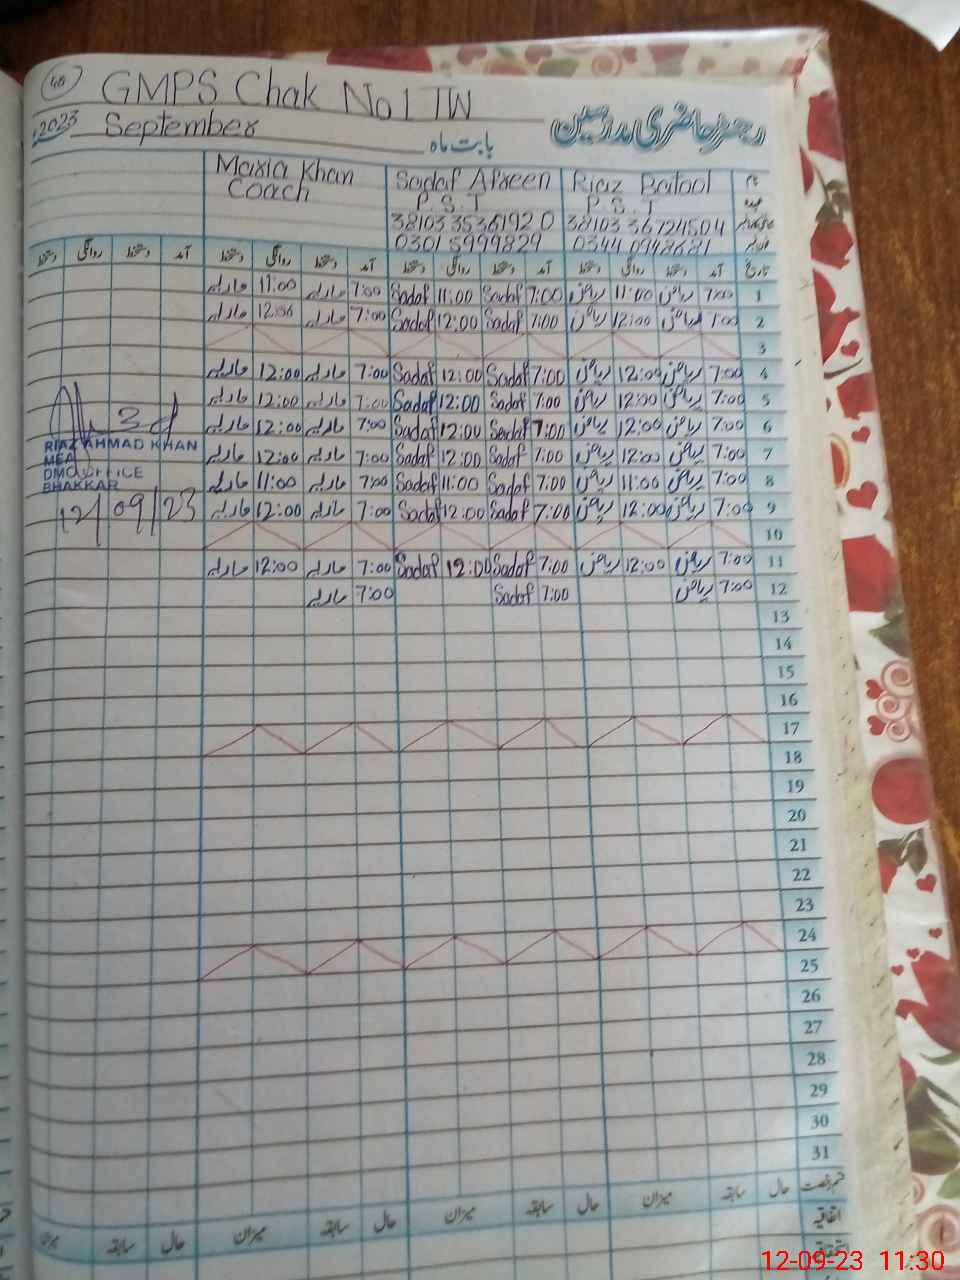 48 GMPS Chak No 1 TW
رجسٹر حاضری مدرسین
2023 September بابت ماہ
Maria Khan Sadaf Afreen Riaz Batool نام
Coach P.S.T P.S.T عہدہ
38103 3536192 0 38103 36724504
0301 5999829 0344 0948681
دستخط روانگی دستخط آمد دستخط روانگی دستخط آمد دستخط روانگی دستخط آمد دستخط روانگی دستخط آمد تاریخ
ماریہ 11:00 ماریہ 7:00 Sadaf 11:00 Sadaf 7:00 ریاض 11:00 ریاض 7:00 1
ماریہ 12:00 ماریہ 7:00 Sadaf 12:00 Sadaf 7:00 ریاض 12:00 ریاض 7:00 2
3
ماریہ 12:00 ماریہ 7:00 Sadaf 12:00 Sadaf 7:00 ریاض 12:00 ریاض 7:00 4
ماریہ 12:00 ماریہ 7:00 Sadaf 12:00 Sadaf 7:00 ریاض 12:00 ریاض 7:00 5
ماریہ 12:00 ماریہ 7:00 Sadaf 12:00 Sadaf 7:00 ریاض 12:00 ریاض 7:00 6
ماریہ 12:00 ماریہ 7:00 Sadaf 12:00 Sadaf 7:00 ریاض 12:00 ریاض 7:00 7
ماریہ 11:00 ماریہ 7:00 Sadaf 11:00 Sadaf 7:00 ریاض 11:00 ریاض 7:00 8
ماریہ 12:00 ماریہ 7:00 Sadaf 12:00 Sadaf 7:00 ریاض 12:00 ریاض 7:00 9
10
ماریہ 12:00 ماریہ 7:00 Sadaf 12:00 Sadaf 7:00 ریاض 12:00 ریاض 7:00 11
ماریہ 7:00 Sadaf 7:00 ریاض 7:00 12
RIAZ AHMAD KHAN
MEA
DMO OFFICE
BHAKKAR
12/09/23
13
14
15
16
17
18
19
20
21
22
23
24
25
26
27
28
29
30
31
میزان سابقہ حال میزان سابقہ حال میزان سابقہ حال میزان سابقہ حال قسم رخصت
اتفاقیہ
12-09-23 11:30